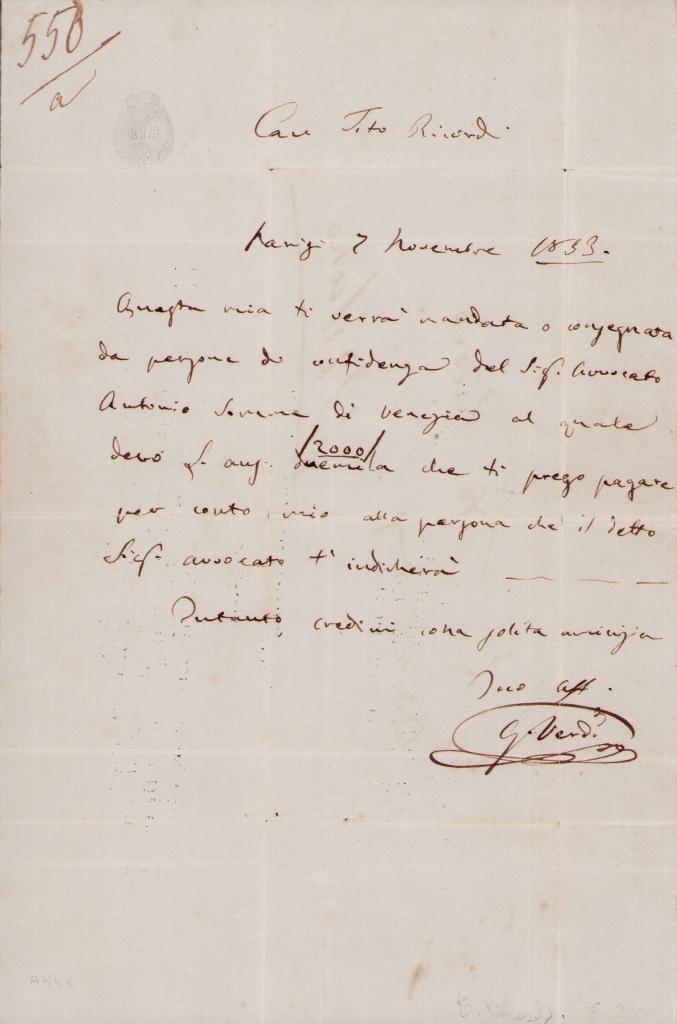 550
a
Caro Tito Ricordi
Parigi 7 Novembre 1853.
Questa mia ti verrà mandata o consegnata
da persona di confidenza del Sig. Avvocato
Antonio Somma di Venezia al quale
devo L. aus. /2000/
duemila che ti prego pagare
per conto mio alla persona che il detto
Sig. avvocato t'indicherà _ _ _
Intanto credimi colla solita amicizia
Tuo aff.
G. Verdi
AKKK